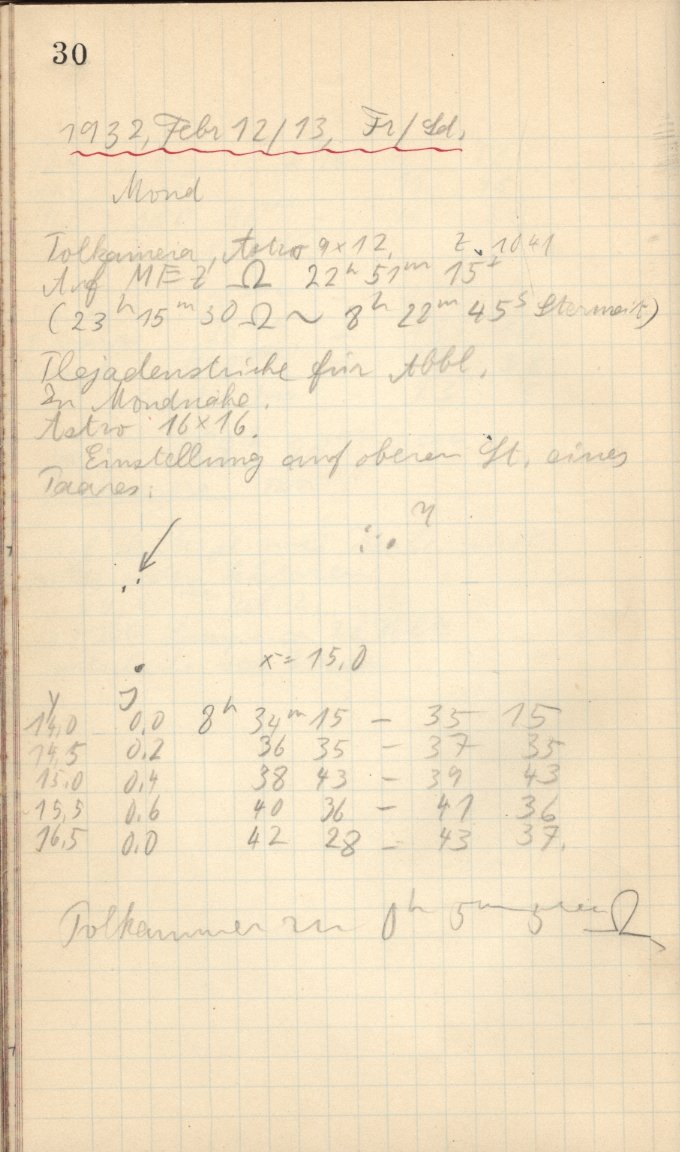 30
1932, Febr 12/13, Fr/Sd.
Mond
Polkamera, Astro 9×12, Z. 1041
Auf MEZ Ω 22h 51m 15s
(23h 15m 30 Ω ~ 8h 22m 45s Sternzeit)
Plejadenstriche für Abbl.
In Mondnähe.
Astro 16×16.
Einstellung auf oberen St. eines
Paares:
η
x = 15,0
y
14,0 0,0 8h 34m 15 – 35 15
14,5 0,2 36 35 – 37 35
15,0 0,4 38 43 – 39 43
15,5 0,6 40 36 – 41 36
16,5 0,0 42 28 – 43 37.
zu 0h 5m Ω